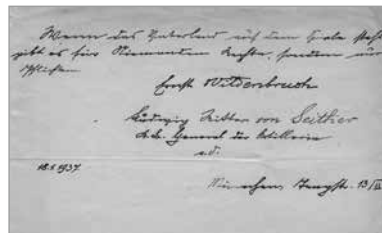 Wenn das Vaterland auf dem Spiele steht
gibt es für Niemanden Rechte, sondern nur
Pflichten
Ernst Wildenbruch
Ludwig Ritter von
General der Artillerie
a.D.
18.X 1937
München 13/III